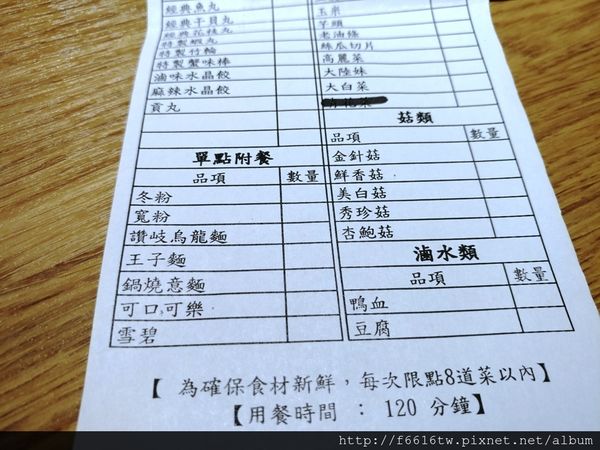 經典魚丸
經典干貝丸
經典花枝丸
特製蝦丸
特製竹輪
特製蟹味棒
滷味水晶餃
麻辣水晶餃
貢丸
單點附餐
品項 數量
冬粉
寬粉
讚岐烏龍麵
王子麵
鍋燒意麵
可口可樂
雪碧
玉米
芋頭
老油條
絲瓜切片
高麗菜
大陸妹
大白菜
菇類
品項 數量
金針菇
鮮香菇
美白菇
秀珍菇
杏鮑菇
滷水類
品項 數量
鴨血
豆腐
【 為確保食材新鮮，每次限點8道菜以內】
【用餐時間 : 120 分鐘】
http://f6616tw.pixnet.net/album